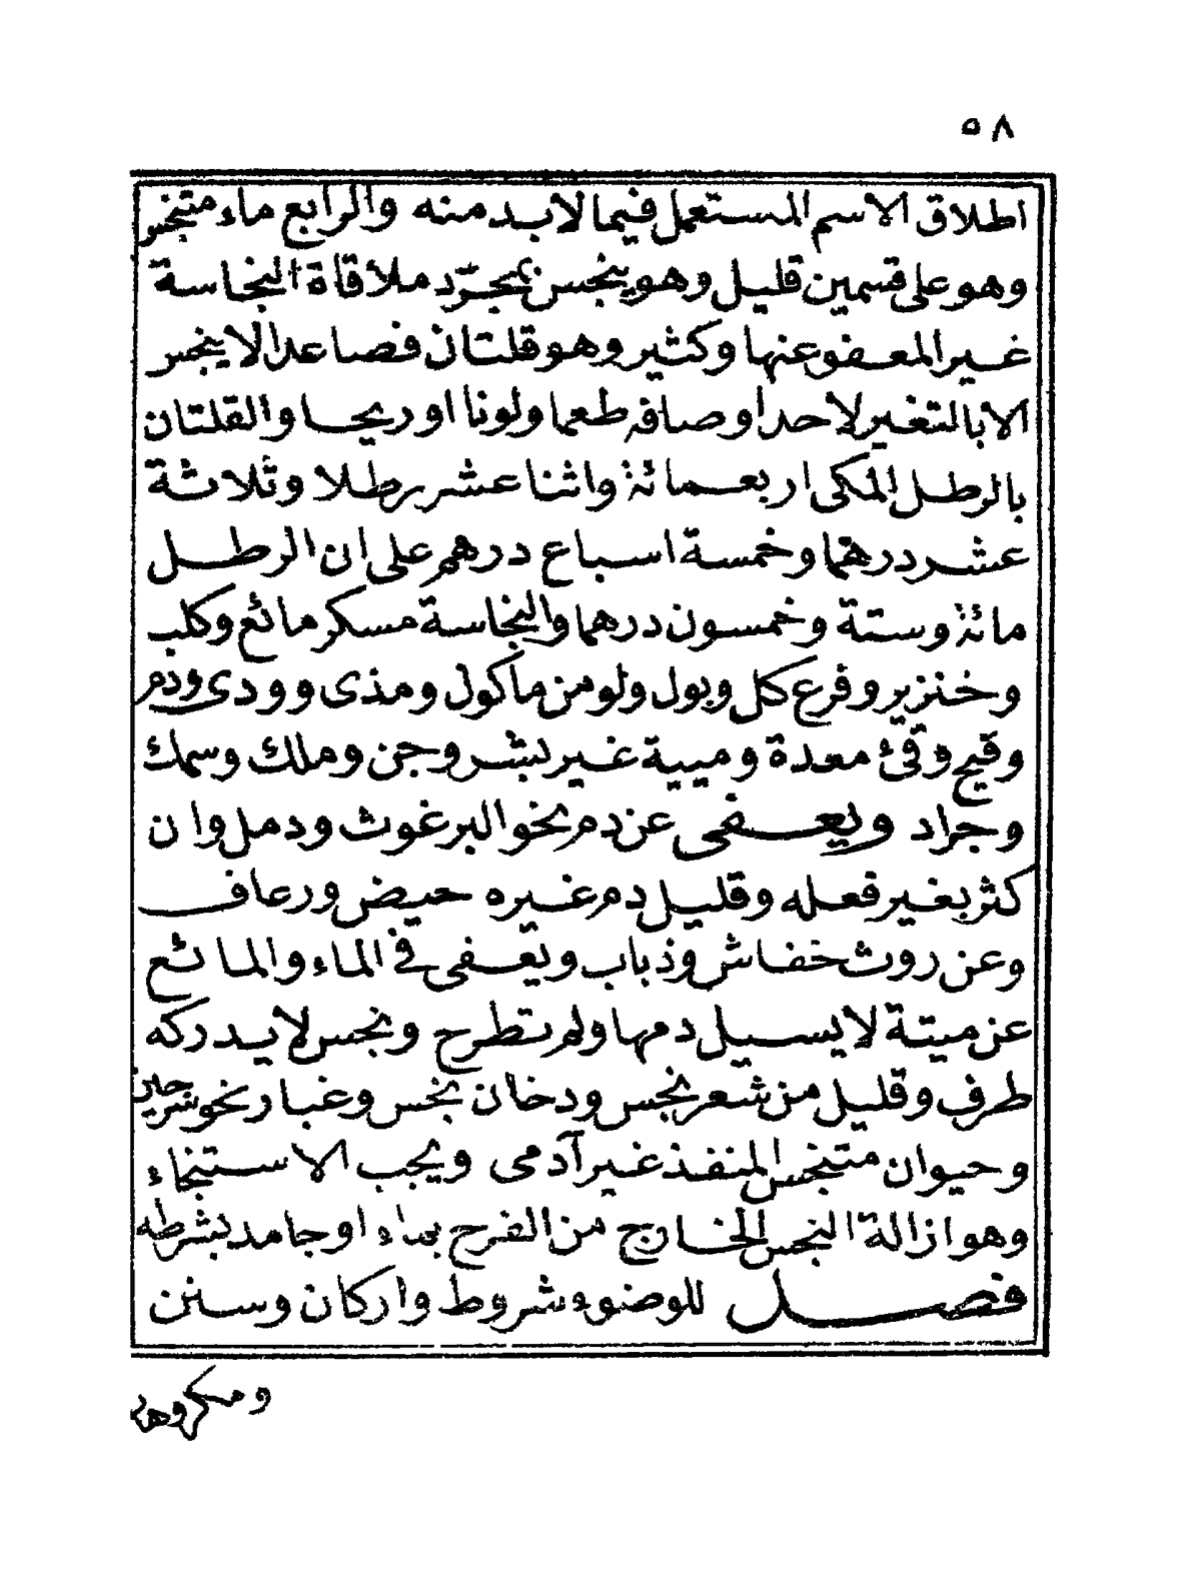 ٥٨
اطلاق الاسم المستعمل فيما لابد منه والرابع ماء متنجس
وهو على قسمين قليل وهو ينجس بمجرّد ملاقاة النجاسة
غير المعفو عنها وكثير وهو قلتان فصاعدا لا ينجس
الا بالتغير لاحد اوصافه طعما ولونا او ريحا والقلتان
بالرطل المكى اربعمائة واثنا عشر رطلا وثلاثة
عشر درهما وخمسة اسباع درهم على ان الرطل
مائة وستة وخمسون درهما والنجاسة مسكر مائع وكلب
وخنزير وفرع كل وبول ولو من ماكول ومذى وودى ودم
وقيح وقئ معدة وميية غير بشر وجن وملك وسمك
وجراد ويعفى عن دم نحو البرغوث ودمل وان
كثر بغير فعله وقليل دم غيره حيض ورعاف
وعن روث خفاش وذباب ويعفى فى الماء والمائع
عن ميتة لا يسيل دمها ولم تطرح ونجس لا يدركه
طرف وقليل من شعر نجس ودخان نجس وغبار نحو سرجين
وحيوان متنجس المنفذ غير آدمى ويجب الاستنجاء
وهو ازالة النجس الخارج من الفرج بماء او جامد بشرطه
فصل للوضوء شروط واركان وسنن
ومكروهات